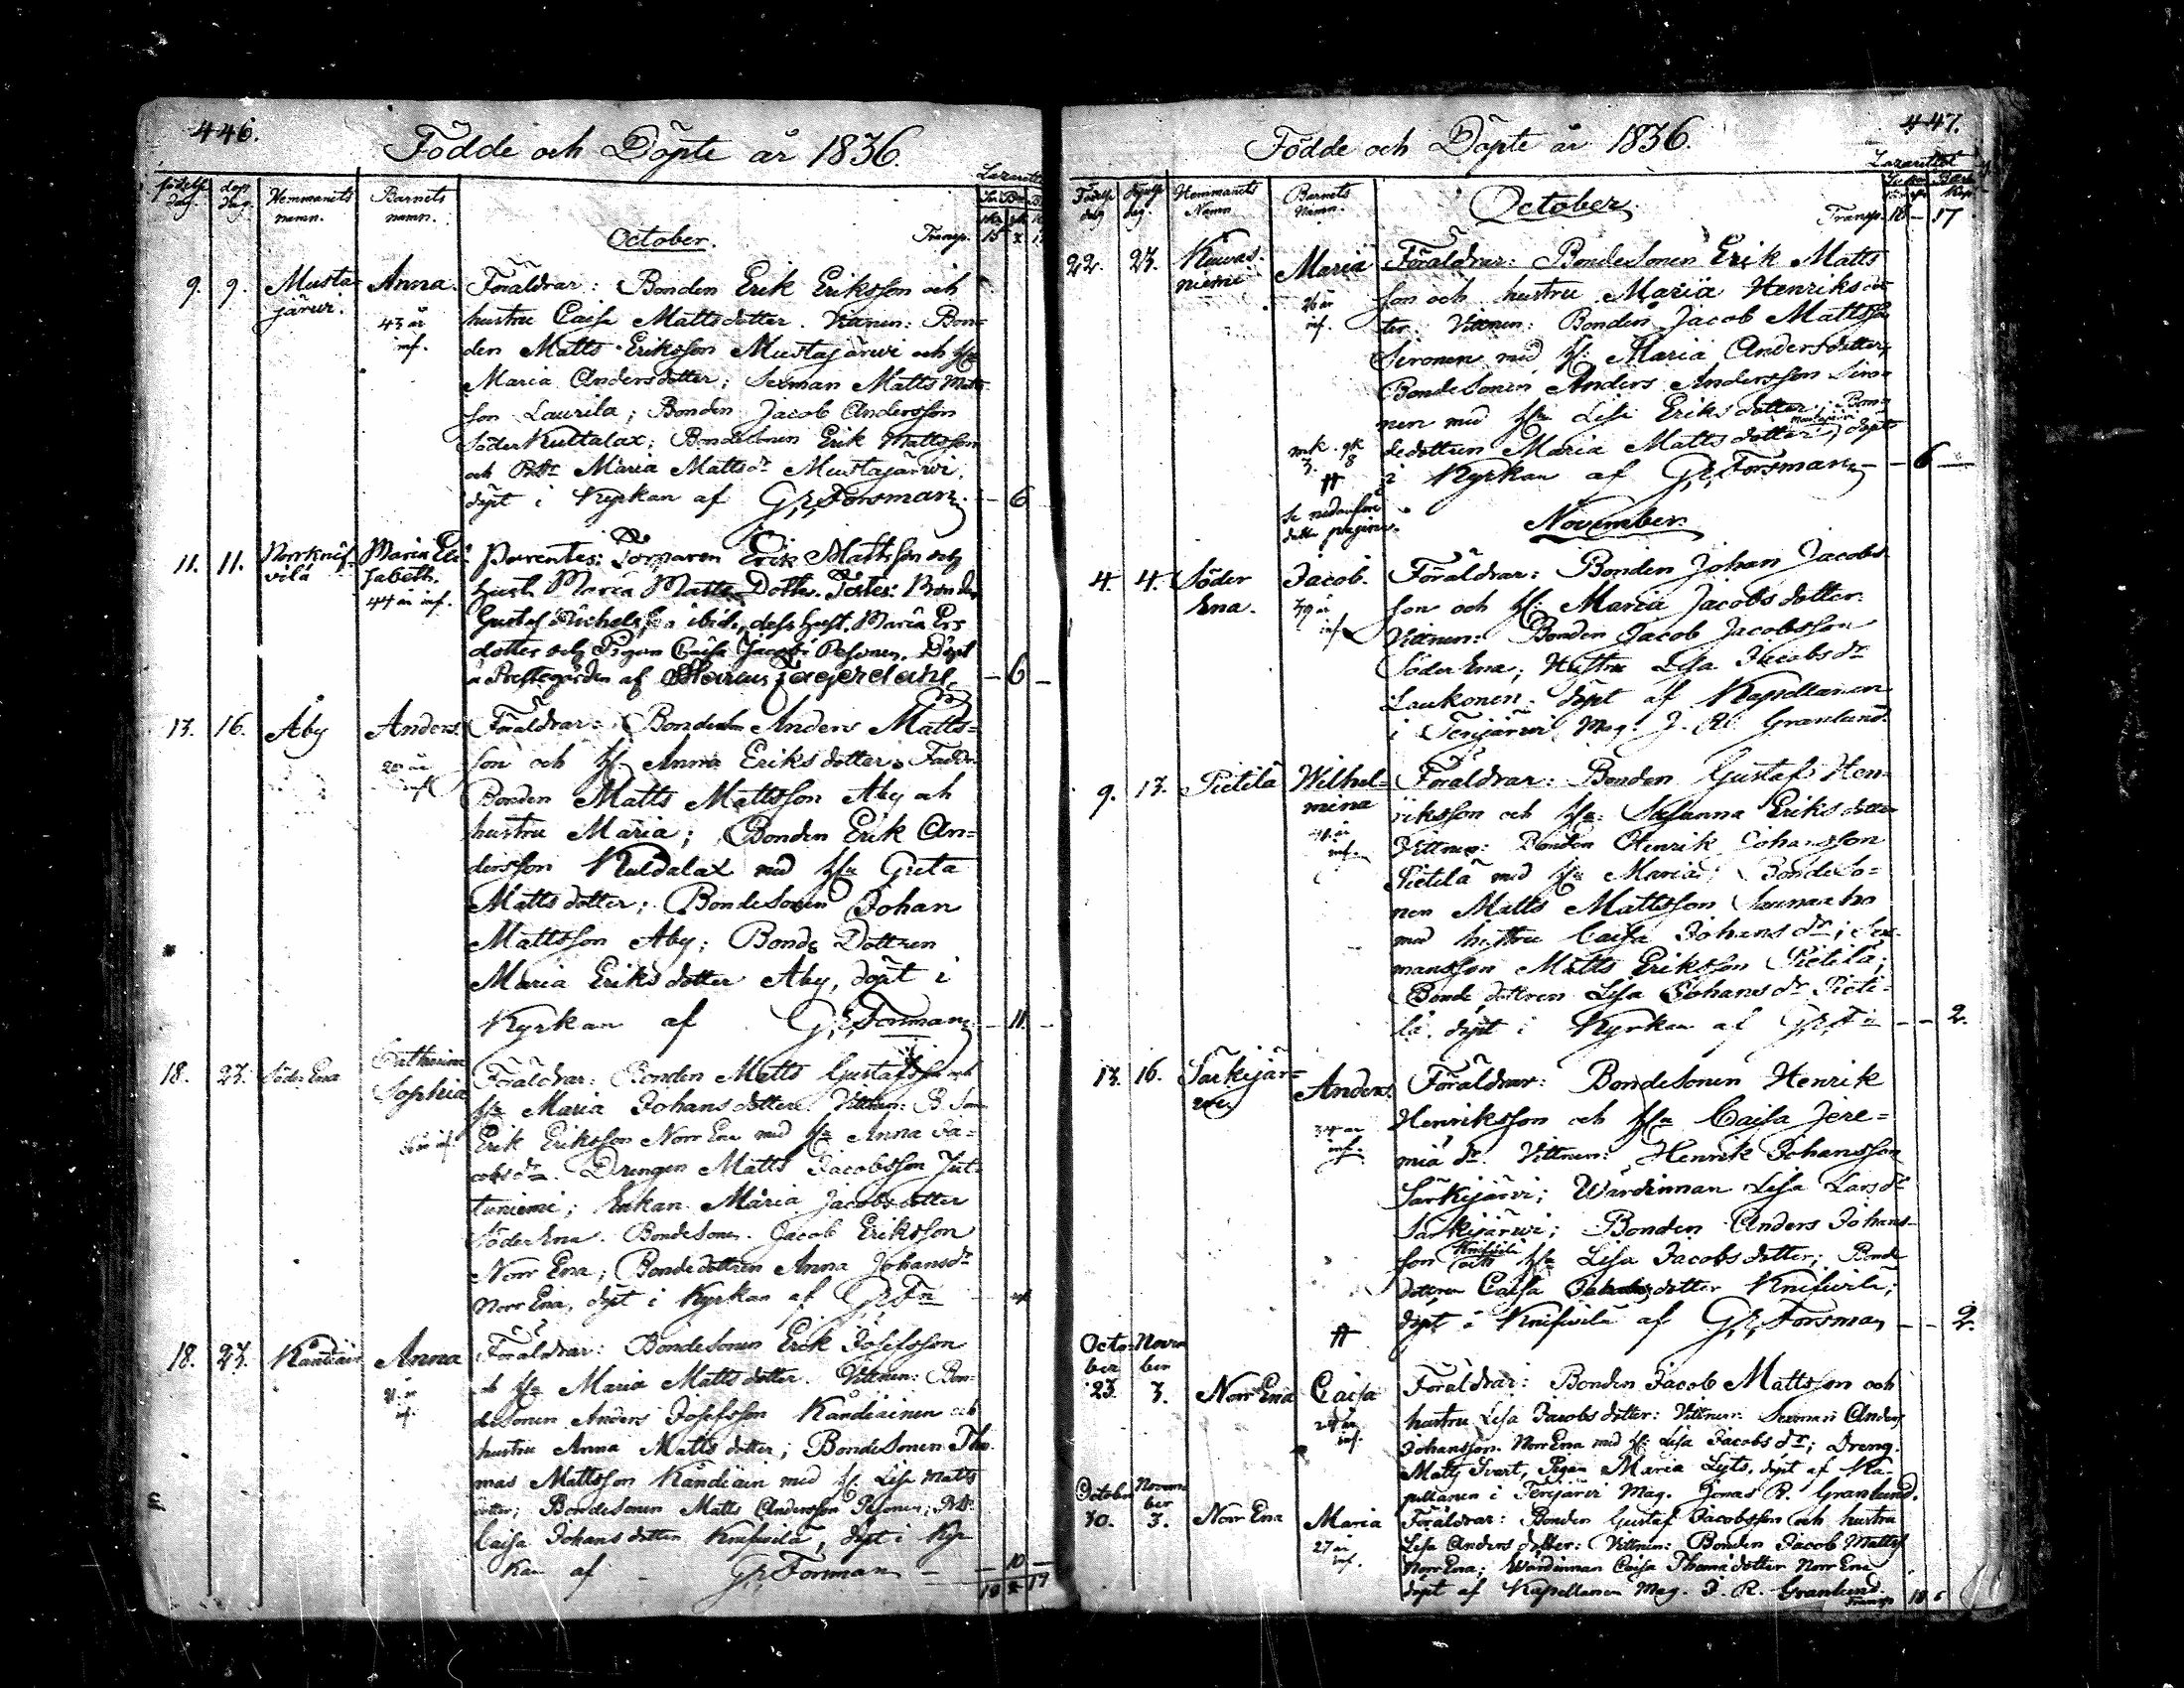 446.
Födde och Döpte år 1836.
Lazarette
födelse dag. dop dag. Hemmanets namn. Barnets namn.
October. Transp. 15
9. 9. Mustajärwi. Anna. Föräldrar: Bonden Erik Eriksson och
43 år hustru Caisa Mattsdotter. Vittnen: Bon-
inf. den Matts Eriksson Mustajärwi och hu
Maria Andersdotter; Sexman Matts Matts
son Laurila; Bonden Jacob Andersson
Söder Kultalax; Bondesonen Erik Mattsson
och Maria Mattsdr Mustajärwi.
döpt i Kyrkan af G: E: Forsman. — 6
11. 11. Norrknif-
vilä Maria Eli-
sabeth. Parentes: Torparen Erik Mattsson och
44 år inf. hust. Maria Matts Dotter. Testes: Bonden
Gustaf Michelsson ibid., dess hust. Maria Ers
dotter och Pigan Caisa Jacobi Pesonen. Döpt
i Prestegården af Jagerdahl. — 6 —
13. 16. Åby Anders. Föräldrar: Anders Matts-
20 år son och hu Anna Eriksdotter. Fadd:
inf Bonden Matts Mattsson Åby och
hustru Maria; Bonden Erik An-
dersson Kuldalax med hu Greta
Mattsdotter; Bondesonen Johan
Mattsson Åby; Bonde Dottren
Maria Eriksdotter Åby, döpt i
Kyrkan af G: E: Forsman — 11. —
18. 23. Söder Ena Catharina
Sophia Föräldrar: Bonden Matts Gustafsson och
hu Maria Johansdotter. Vittnen: B. Son
Erik Eriksson Norr Ena med hu Anna Ja-
cobsdr. Drengen Matts Jacobsson Jut-
tuniemi; Enkan Maria Jacobsdotter
Söder Ena. Bondeson. Jacob Eriksson
Norr Ena; Bondedottren Anna Johansdr
Norr Ena, döpt i Kyrkan af G: E: Fn
18. 23. Kandiäin Anna Föräldrar: Bondesonen Erik Josefsson
inf. och hu Maria Mattsdotter. Vittnen: Bon-
desonen Anders Josefsson Kandiäinen och
hustru Anna Mattsdotter; Bondesonen Tho-
mas Mattsson Kandiäin med hu Lisa Matts
dotter; Bondesonen Matts Andersson Pesonen;
Caisa Johansdotter Knifwilä, döpt i Kyr-
kan af G: E: Forsman — 10 —
447.
Födde och Döpte år 1836.
Lazarettet
Födelse dag Döpelse dag. Hemmanets Namn Barnets Namn.
October. Transp. 18 — 17
22. 23. Kuwas-
niemi Maria Föräldrar: Bondesonen Erik Matts
26 år son och hustru Maria Henriksdot
inf. ter. Vittnen: Bonden Jacob Mattsson
Sironen med hu: Maria Andersdotter;
Bondesonen Anders Andersson Siro-
nen med hu Lisa Eriksdotter; Bon-
dedottren Maria Mattsdotter, döpt
i Kyrkan af G: E: Forsman — 6 —
Se nedanföre
detta pagina.
November.
4. 4. Söder
Ena. Jacob. Föräldrar: Bonden Johan Jacobs
39 år son och hu: Maria Jacobsdotter.
inf Vittnen: Bonden Jacob Jacobsson
Söder Ena; Hustru Lisa Jacobsdr
Laukonen. döpt af Kapellanen
i Terijärwi Mag. J. R. Granlund.
9. 13. Pietilä Wilhel-
mina Föräldrar: Bonden Gustaf Hen-
riksson och hu: Susanna Eriksdotter
inf. Vittnen: Bonden Henrik Johansson
Pietilä med hu Maria; Bondeso-
nen Matts Mattsson Saunaaho
med hustru Caisa Johansdr; Sex-
mansson Matts Eriksson Pietilä;
Bonde dottren Lisa Johansdr Pieti-
lä. döpt i Kyrkan af G: E: F n — — 2.
13. 16. Särkijär-
wi Anders. Föräldrar: Bondesonen Henrik
34 år Henriksson och hu Caisa Jere-
inf. miä dr. Vittnen: Henrik Johansson
Särkijärwi; Wärdinnan Lisa Larsdr
Särkijärwi; Bonden Anders Johans-
son Knifwilä och hu Lisa Jacobsdotter; Bonde
dottren Caisa dotter Knifwilä;
döpt i Knifwilä af G: E: Forsman — — 2.
Octo-
ber Novem
ber
23. 3. Norr Ena Caisa Föräldrar: Bonden Jacob Mattsson och
inf. hustru Lisa Jacobsdotter: Vittnen: Sexman Anders
Johansson Norr Ena med hu: Lisa Jacobsdr; Dreng.
Matts Svart, Pigan Maria Lyts, döpt af Ka-
pellanen i Terijärvi Mag. Jonas R. Granlund.
October Novem
ber
30. 3. Norr Ena Maria Föräldrar: Bonden Gustaf Jacobsson och hustru
27 år Lisa Andersdotter: Vittnen: Bonden Jacob Mattss
inf. Norr Ena; Wärdinnan Caisa Thomädotter Norr Ena
döpt af Kapellanen Mag. J. R. Granlund.
Transp 18 6